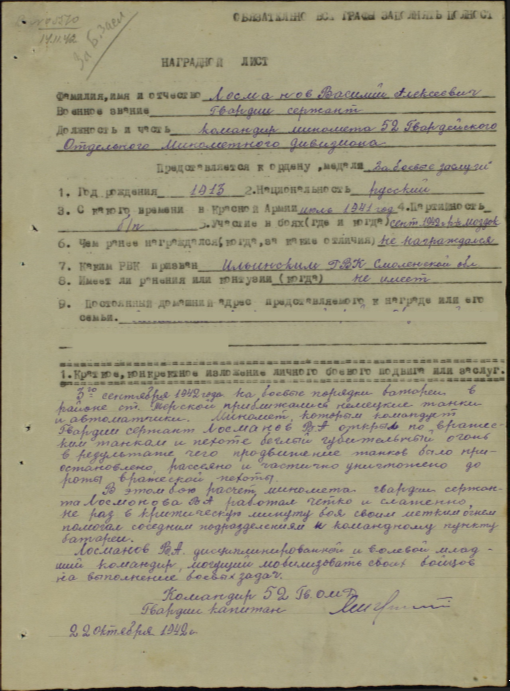 14.11.42
ОБЯЗАТЕЛЬНО ВСЕ ГРАФЫ ЗАПОЛНЯТЬ ПОЛНОСТ
НАГРАДНОЙ ЛИСТ
Фамилия, имя и отчество Лосманов Василий Алексеевич
Военное звание Гвардии сержант
Должность и часть командир миномета 52 Гвардейского
Отдельного Минометного дивизиона
Представляется к ордену, медали За боевые заслуги
1. Год рождения 1913 2. Национальность русский
3. С какого времени в Красной Армии июль 1941 год 4. Партийность
б/п 5. Участие в боях (где и когда) сент. 1942
6. Чем ранее награждался (когда, за какие отличия) не награждался
7. Каким РВК призван Ильинским РВК Смоленской обл
8. Имеет ли ранения или контузии (когда) не имеет
9. Постоянный домашний адрес представляемого к награде или его
семьи.
1. Краткое, конкретное изложение личного боевого подвига или заслуг.
сентября 1942 года на боевые порядки батареи в
районе ст. Терской приближались немецкие танки
и автоматчики. Миномет, котором командует
Гвардии сержант Лосманов В А открыл по вражес-
ким танкам и пехоте беглый губительный огонь
в результате чего продвижение танков было при-
остановлено, рассеяно и частично уничтожено до
роты вражеской пехоты.
В этом бою расчет миномета гвардии сержан-
та Лосмонова В А работал четко и слаженно,
не раз в критическую минуту боя своим метким огнем
помогал соседним подразделениям и командному пункту
батареи.
Лосманов В.А. дисциплинированной и волевой млад-
ший командир, могущий мобилизовать своих бойцов
на выполнение боевых задач.
Командир 52 Гв. омд
Гвардии капитан
22 октября 1942г